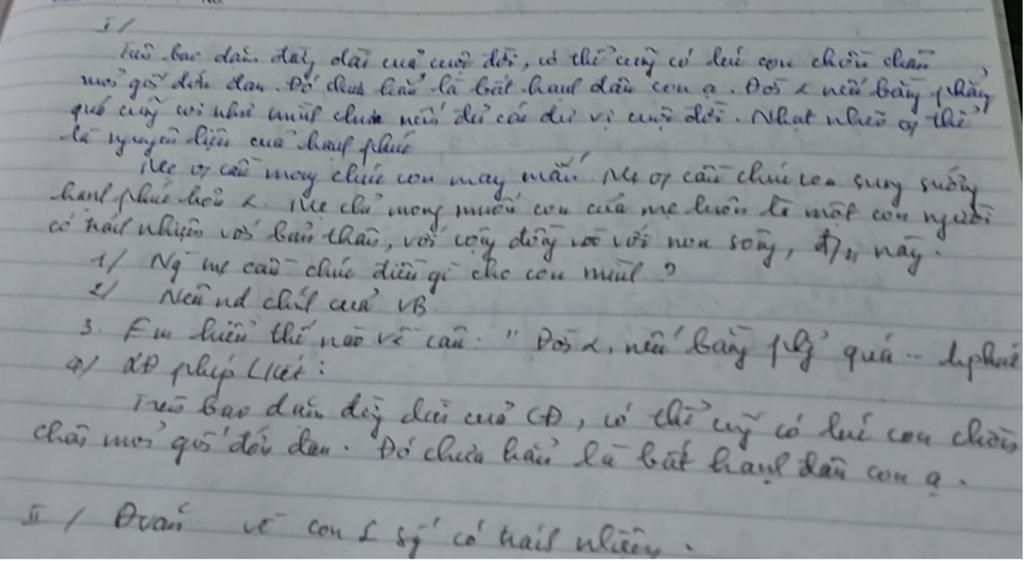 I/
Trên bao dặm dài của cuộc đời, có thể cũng có lúc con chồn chân
mỏi gối đớn đau. Đó chưa hẳn là bất hạnh đâu con ạ. Đời mà nếu bằng phẳng
quá cũng coi như mình chưa nếm đủ các dư vị cuộc đời. Nhọc nhằn có thể
là nguyên liệu của hạnh phúc
Mẹ 0 cầu mong chúc con may mắn. Mẹ 0 cầu chúc con sung sướng
hạnh phúc hơn . Mẹ chỉ mong muốn con của mẹ luôn là một con người
có trách nhiệm với bản thân, với cộng đồng và với non sông, đ/n này.
1/ Ng mẹ cầu chúc điều gì cho con mình?
2/ Nêu nd chính của VB
3. Em hiểu thế nào về câu: " Đời , nếu bằng phẳng quá .. hphúc
4/ XĐ phép l/kết:
Trên bao dặm dài của CĐ, có thể cũng có lúc con chồn
chân mỏi gối đớn đau. Đó chưa hẳn là bất hạnh đâu con ạ.
II / Đvăn về con sống có trách nhiệm.